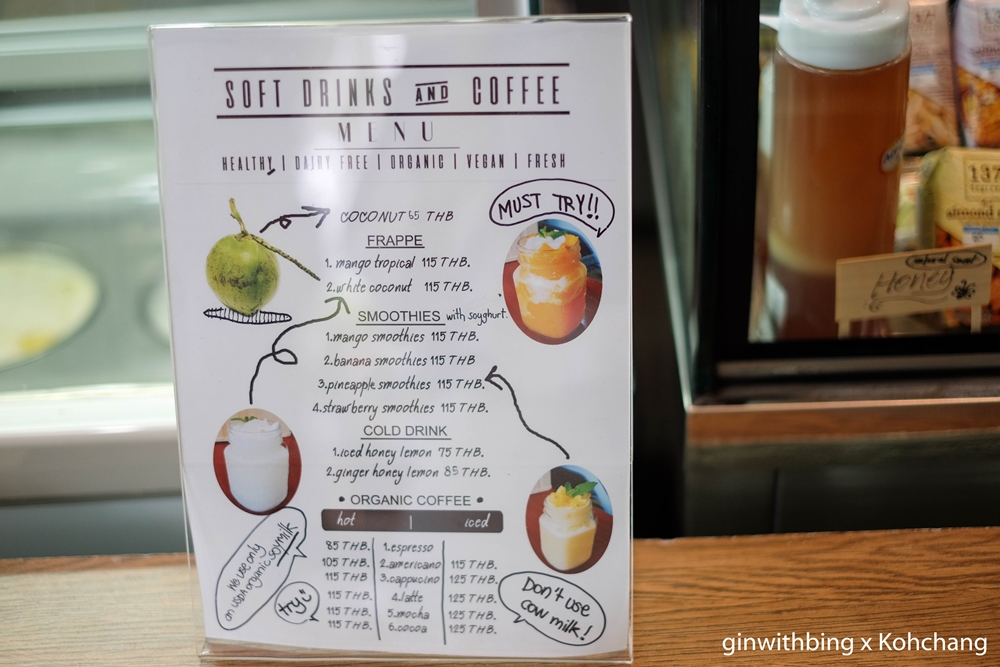 SOFT DRINKS AND COFFEE
MENU
HEALTHY | DAIRY FREE | ORGANIC | VEGAN | FRESH
COCONUT 65 THB
MUST TRY!!
FRAPPE
1. mango tropical 115 THB.
2. white coconut 115 THB.
SMOOTHIES with soyghurt.
1. mango smoothies 115 THB.
2. banana smoothies 115 THB
3. pineapple smoothies 115 THB.
4. strawberry smoothies 115 THB.
COLD DRINK
1. iced honey lemon 75 THB.
2. ginger honey lemon 85 THB.
• ORGANIC COFFEE •
hot | iced
85 THB. 1. espresso
105 THB. 2. americano 115 THB.
115 THB 3. cappucino 125 THB.
115 THB. 4. latte 125 THB.
115 THB. 5. mocha 125 THB.
115 THB. 6. cocoa 125 THB.
We use only
an USDA organic soymilk
try
Don't use
cow milk!
137
almond
natural sweet
Honey
ginwithbing x Kohchang